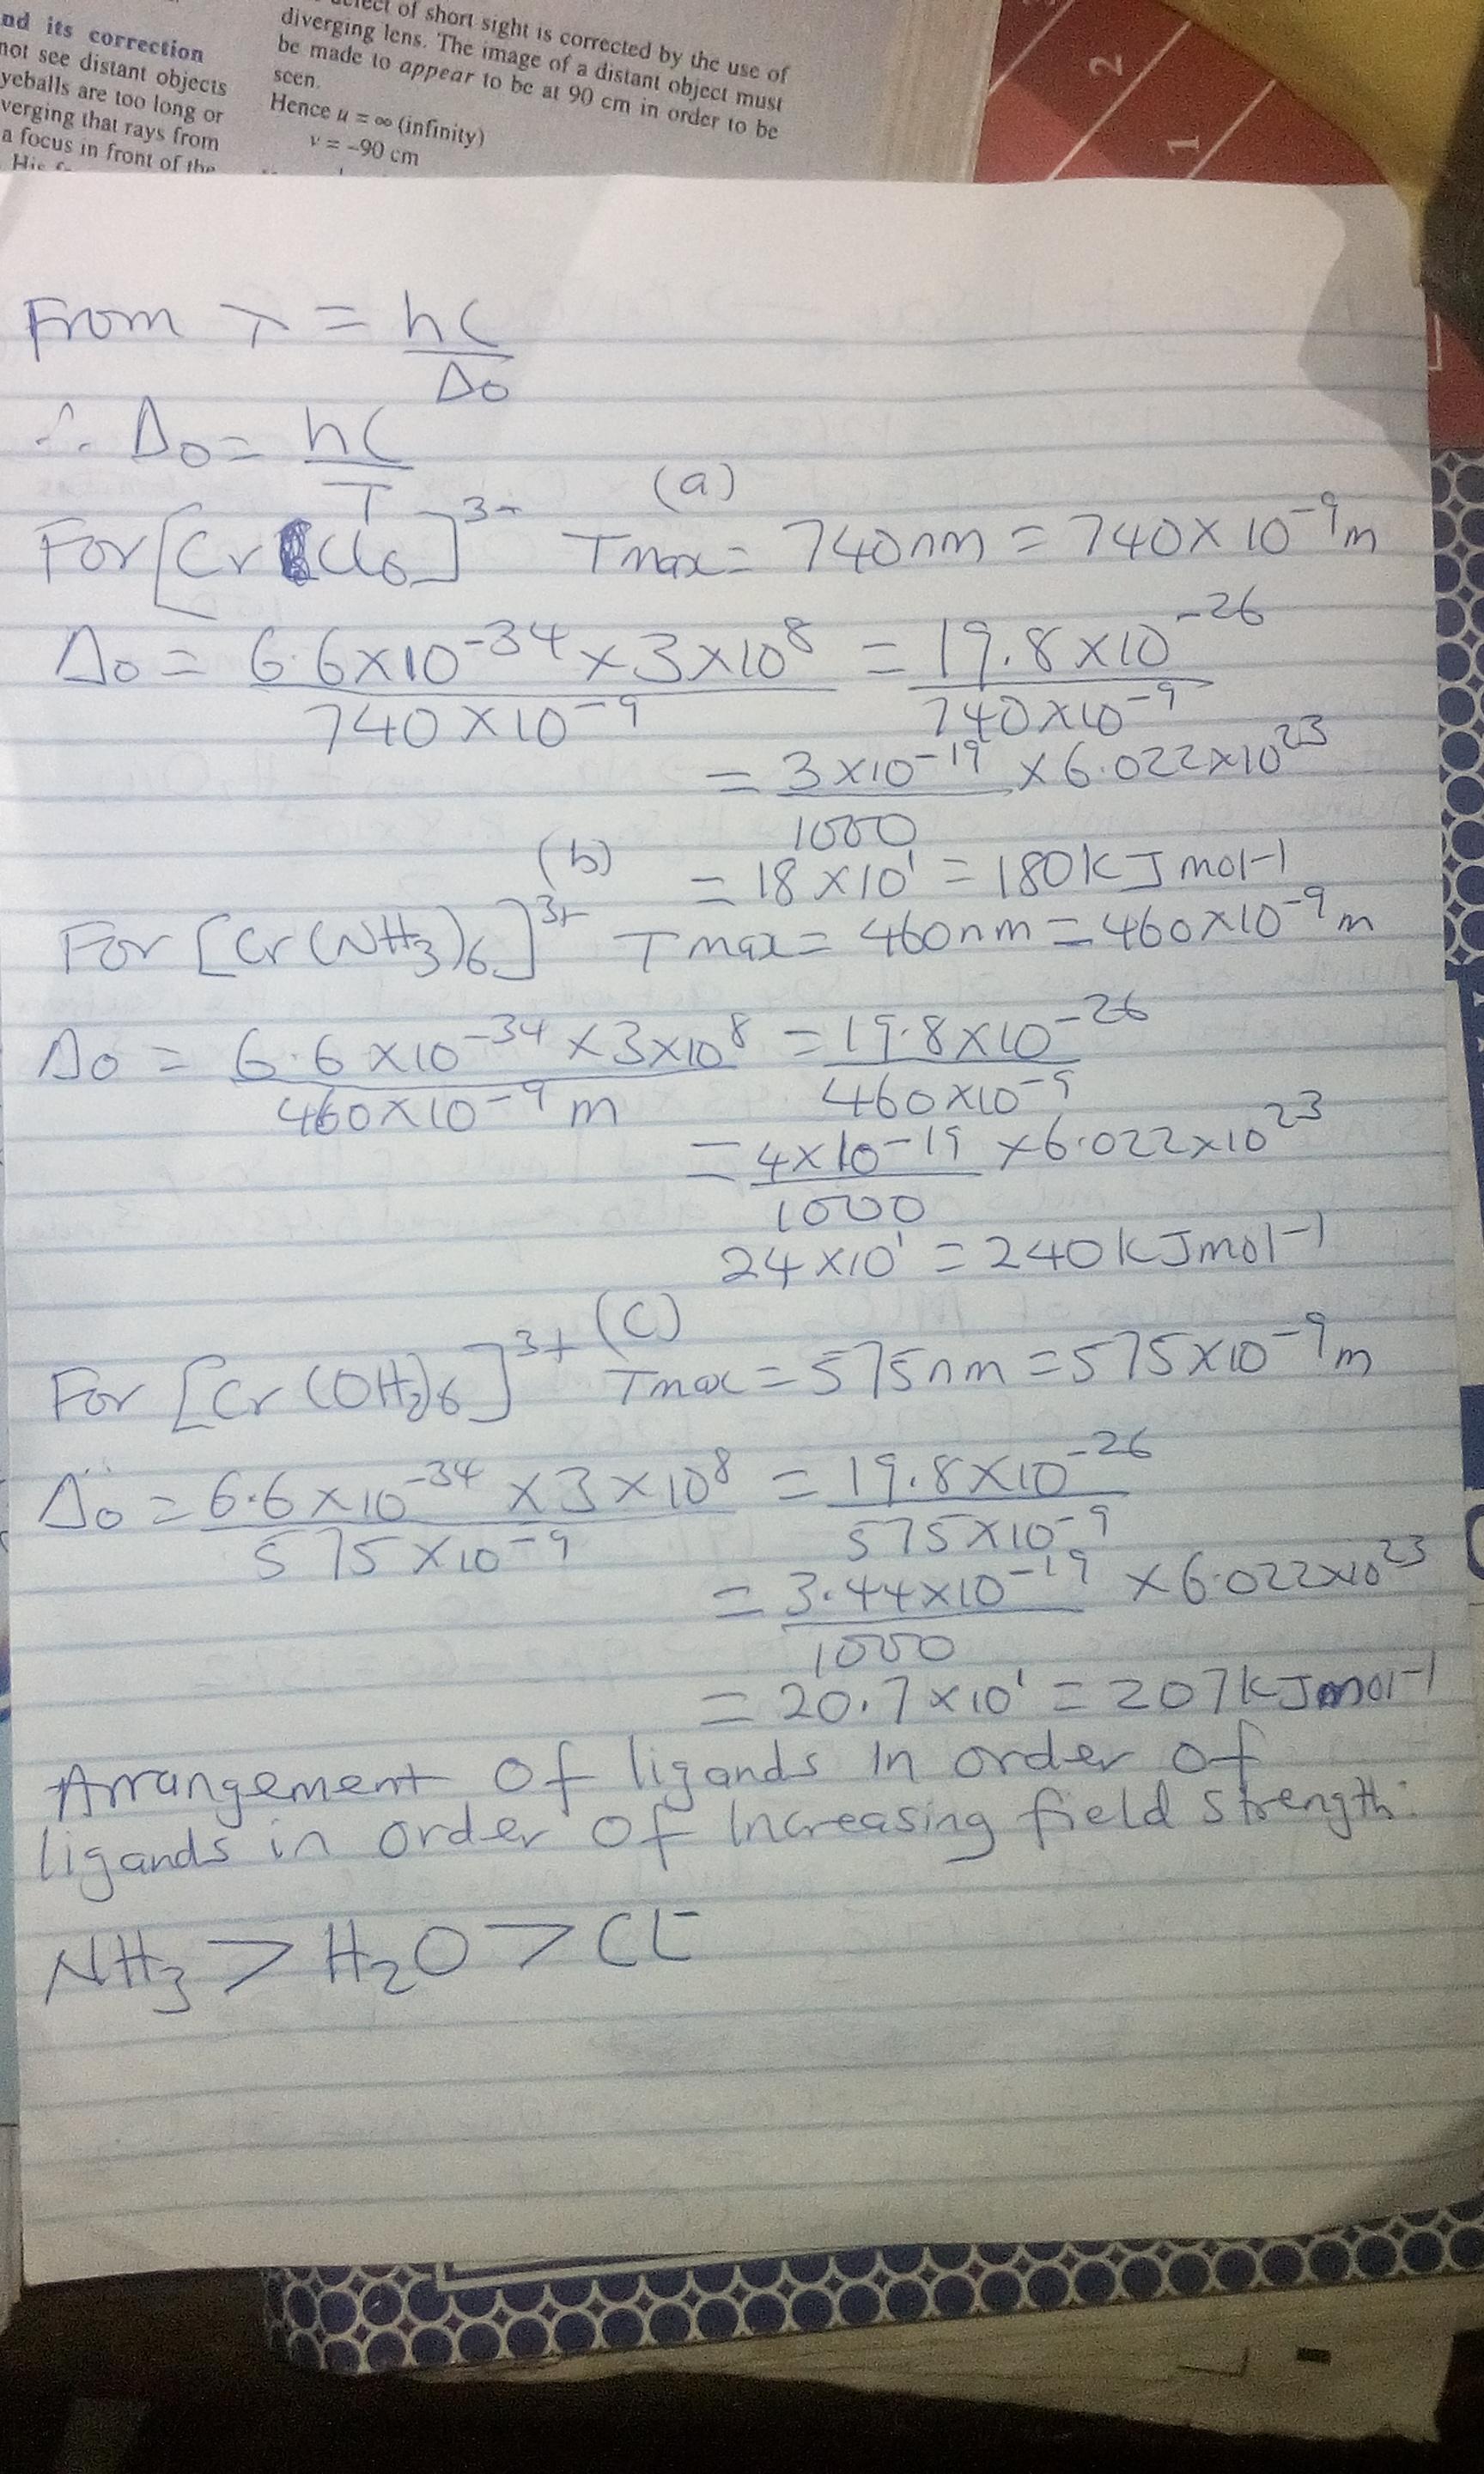 nd its correction
not see distant objects
yeballs are too long or
verging that rays from
a focus in front of the
of short sight is corrected by the use of
diverging lens. The image of a distant object must
be made to appear to be at 90 cm in order to be
seen.
Hence u = ∞ (infinity)
v = -90 cm
2
1
From λ = hC/Δo
∴ Δo = hC/T
(a)
For [CrCl6]3- Tmax = 740nm = 740×10⁻⁹m
Δo = 6.6×10⁻³⁴×3×10⁸/740×10⁻⁹ = 19.8×10⁻²⁶/740×10⁻⁹
= 3×10⁻¹⁹/1000 ×6.022×10²³
= 18×10¹ = 180kJmol-1
(b)
For [Cr(NH3)6]3+ Tmax = 460nm = 460×10⁻⁹m
Δo = 6.6×10⁻³⁴×3×10⁸/460×10⁻⁹m = 19.8×10⁻²⁶/460×10⁻⁹
= 4×10⁻¹⁹/1000 ×6.022×10²³
24×10¹ = 240kJmol-1
(C)
For [Cr(OH2)6]3+ Tmax = 575nm = 575×10⁻⁹m
Δo = 6.6×10⁻³⁴×3×10⁸/575×10⁻⁹ = 19.8×10⁻²⁶/575×10⁻⁹
= 3.44×10⁻¹⁹/1000 ×6.022×10²³
= 20.7×10¹ = 207kJmol-1
Arrangement of ligands in order of
ligands in order of Increasing field strength:
NH3 > H2O > Cl-